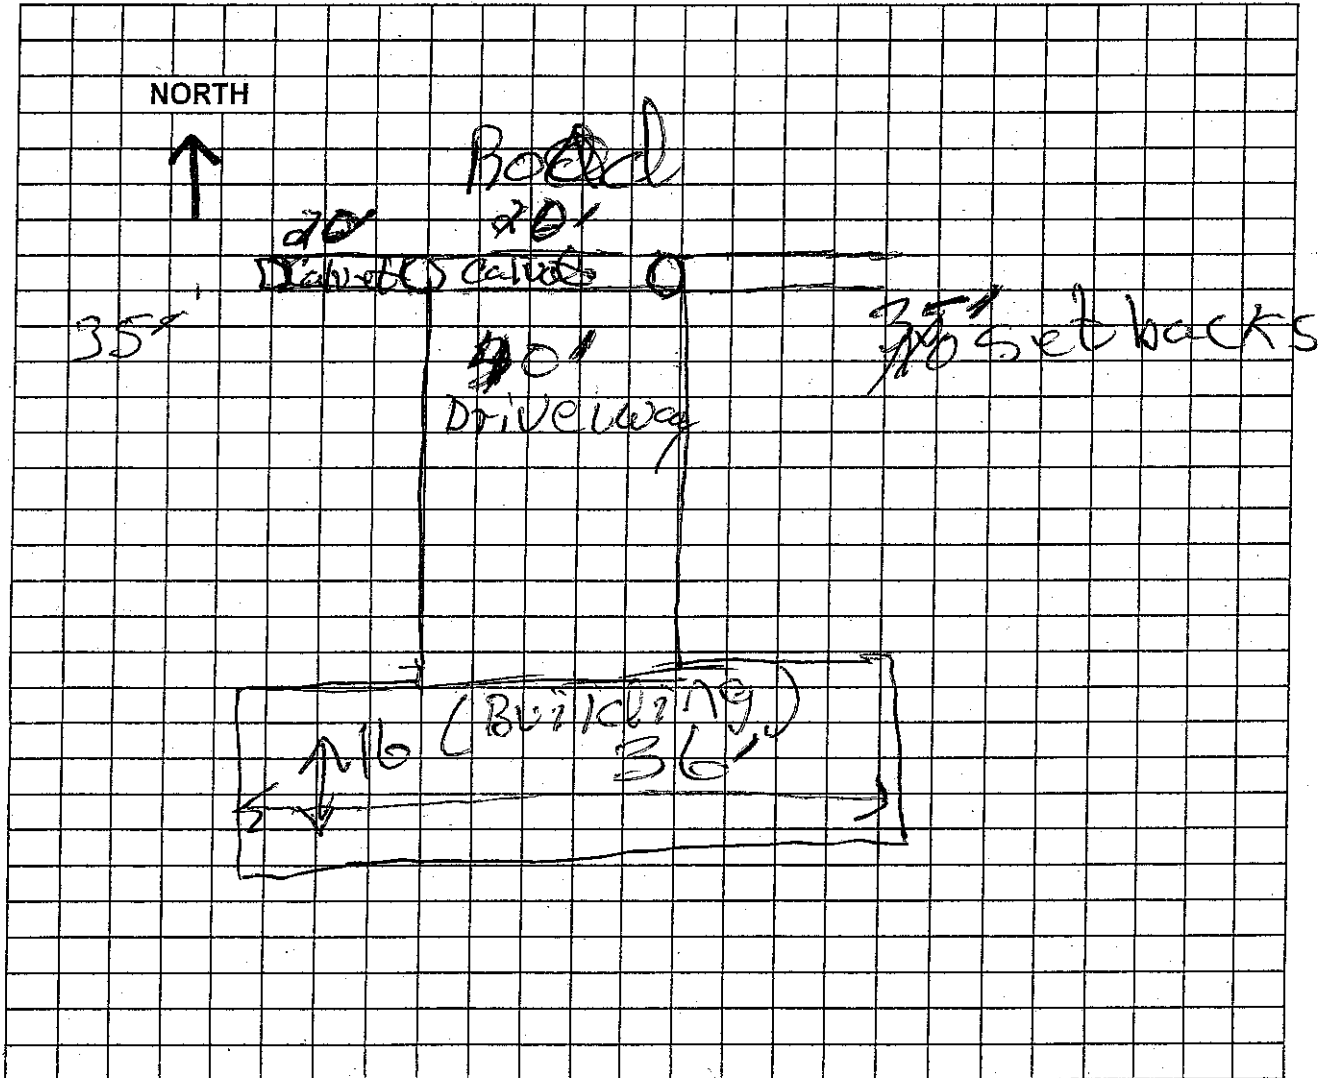 NORTH
Road
20' 20'
Calvet Calvets
35' 35' Setbacks
Driveway
(Building)
16 36'